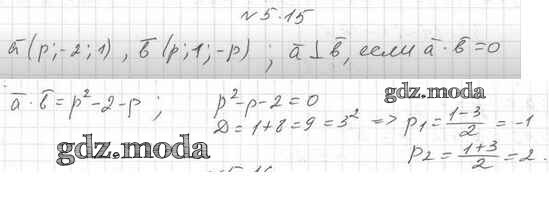 №5.15
ā(p;-2;1), b̄(p;1;-p); ā⊥b̄, если ā·b̄=0
ā·b̄=p²-2-p; p²-p-2=0
gdz.moda
D=1+8=9=3² => p₁=(1-3)/2=-1
gdz.moda
p₂=(1+3)/2=2.